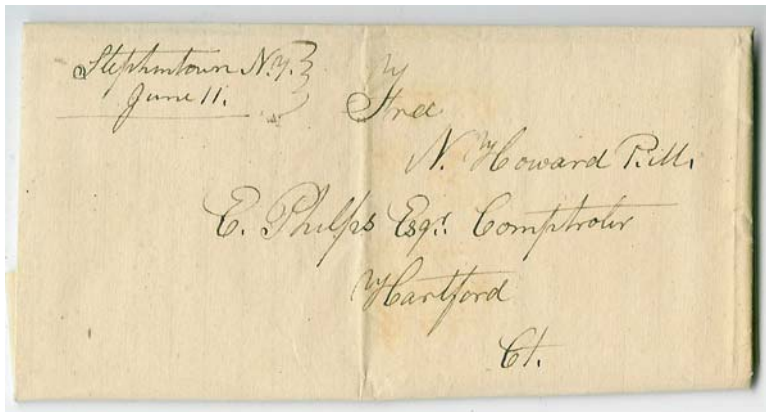 Stephentown N.Y.
June 11.
Free
N. Howard P.M.
E. Phelps Esqr. Comptroler
Hartford
Ct.